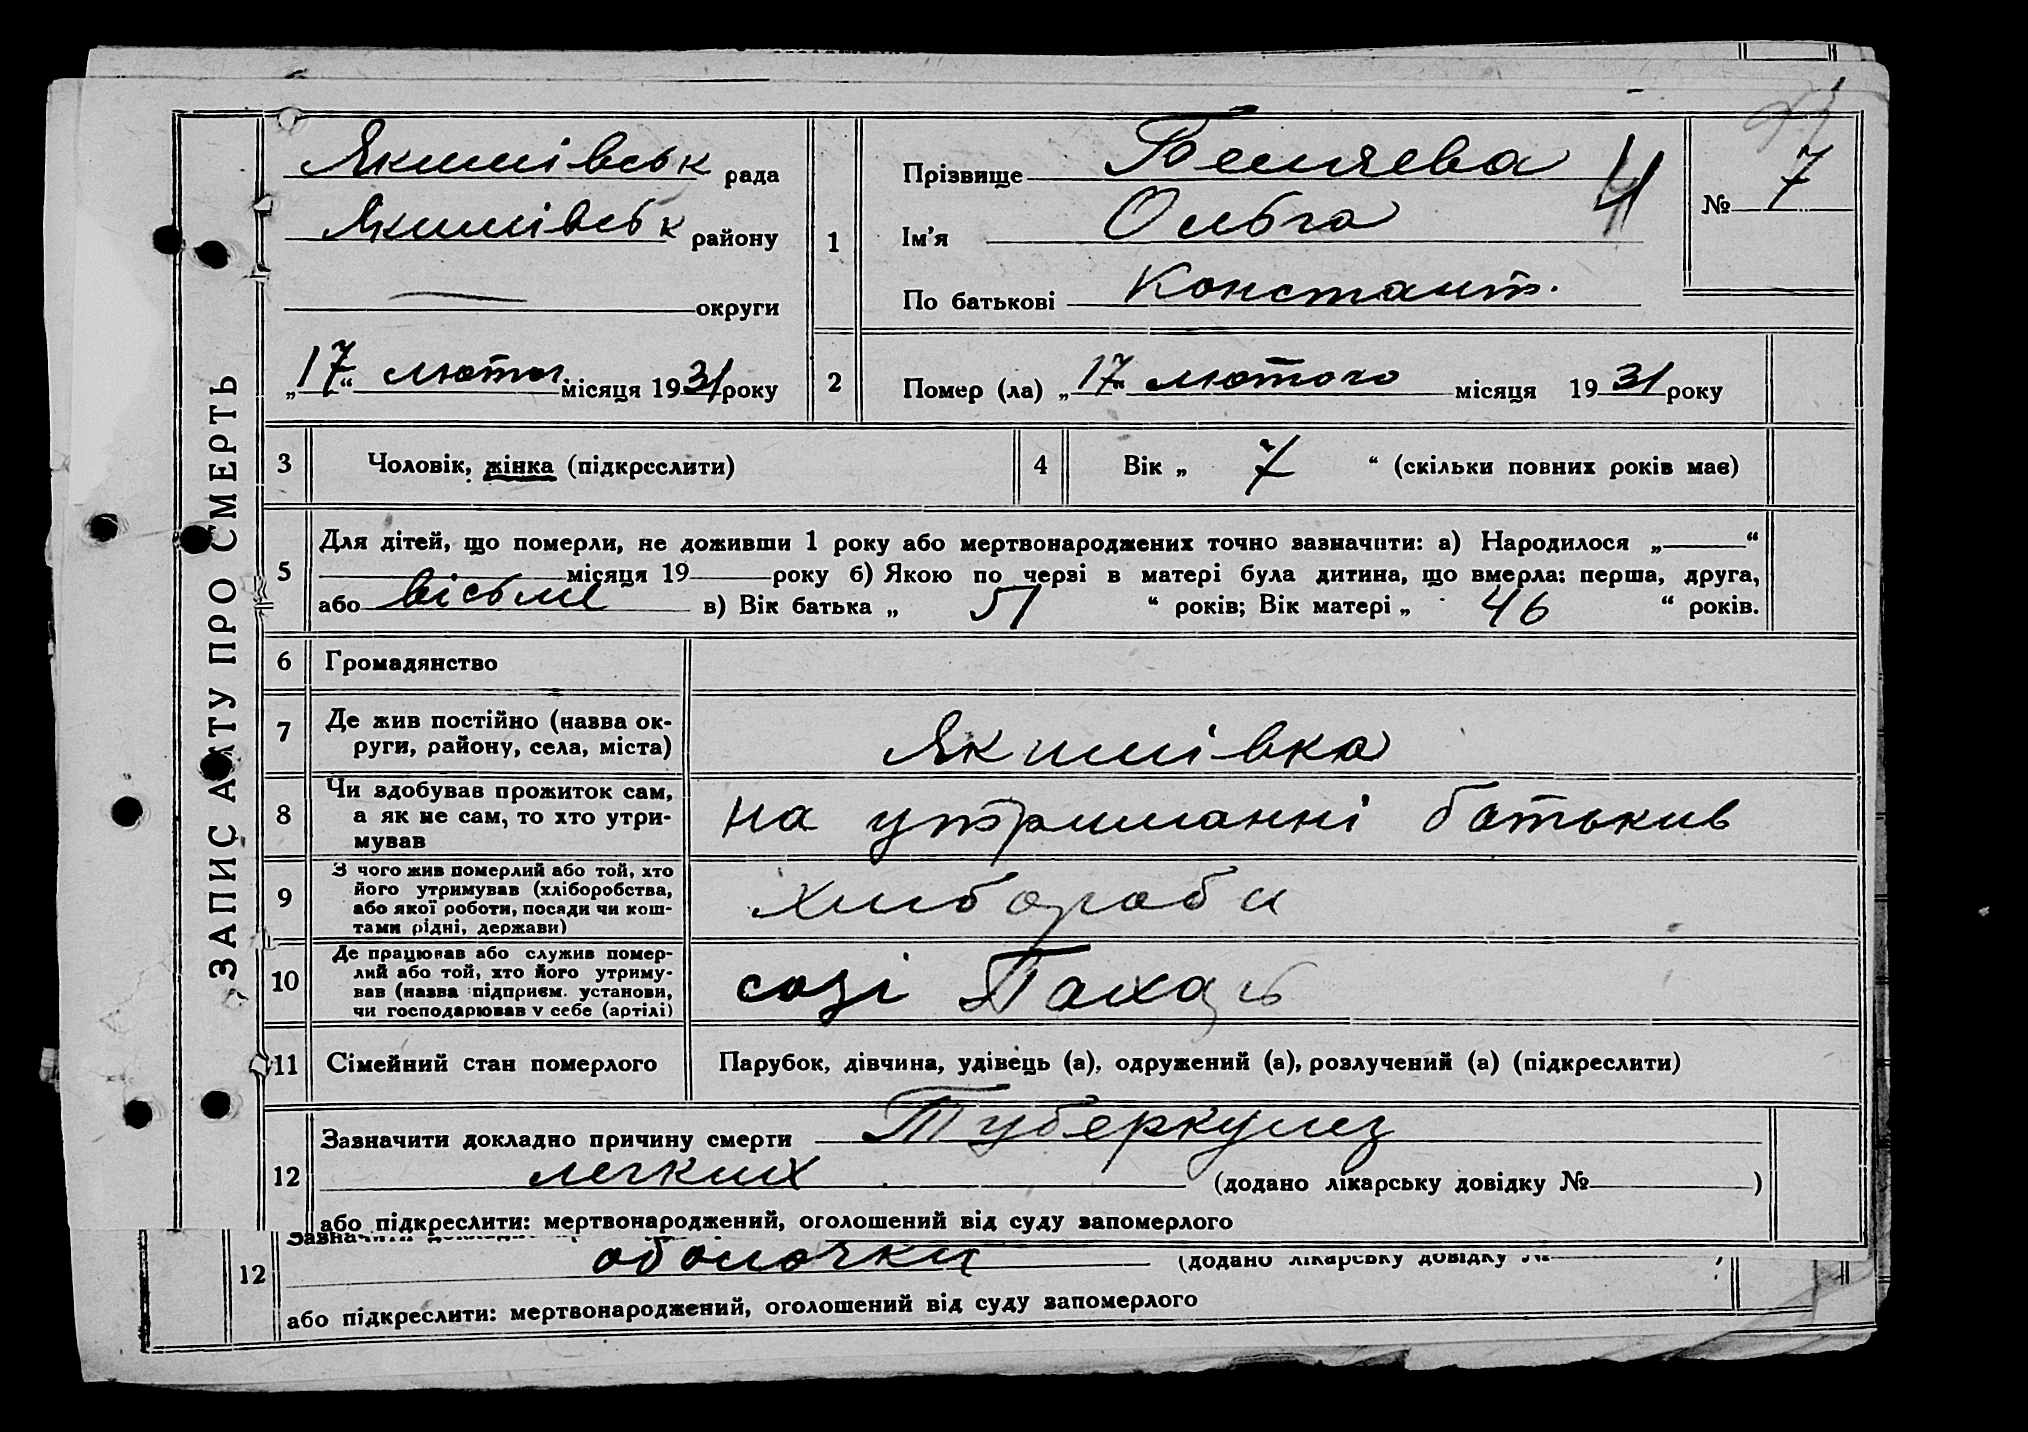 ЗАПИС АКТУ ПРО СМЕРТЬ
Якимівськ рада
Якимівськ району
округи
„17“ лютог. місяця 1931 року
1
Прізвище
Ім'я Ольга
По батькові Констант.
Ч
№ 7
2
Помер (ла) „17“ лютого місяця 1931 року
3
Чоловік, жінка (підкреслити)
4
Вік „ 7 “ (скільки повних років має)
5
Для дітей, що померли, не доживши 1 року або мертвонароджених точно зазначити: а) Народилося „ “
місяця 19 року б) Якою по черзі в матері була дитина, що вмерла: перша, друга,
або вісьме в) Вік батька „ 51 “ років; Вік матері „ 46 “ років.
6
Громадянство
7
Де жив постійно (назва ок-
руги, району, села, міста)
Якимівка
8
Чи здобував прожиток сам,
а як не сам, то хто утри-
мував
на утриманні батькив
9
З чого жив померлий або той, хто
його утримував (хліборобства,
або якої роботи, посади чи кош-
тами рідні, держави)
10
Де працював або служив помер-
лий або той, хто його утриму-
вав (назва підприєм. установи,
чи господарював у себе (артілі)
созі Пахарь
11
Сімейний стан померлого
Парубок, дівчина, удівець (а), одружений (а), розлучений (а) (підкреслити)
12
Зазначити докладно причину смерти Туберкулез
легких (додано лікарську довідку № )
або підкреслити: мертвонароджений, оголошений від суду запомерлого
12
оболочки (додано лікарську довідку №
або підкреслити: мертвонароджений, оголошений від суду запомерлого